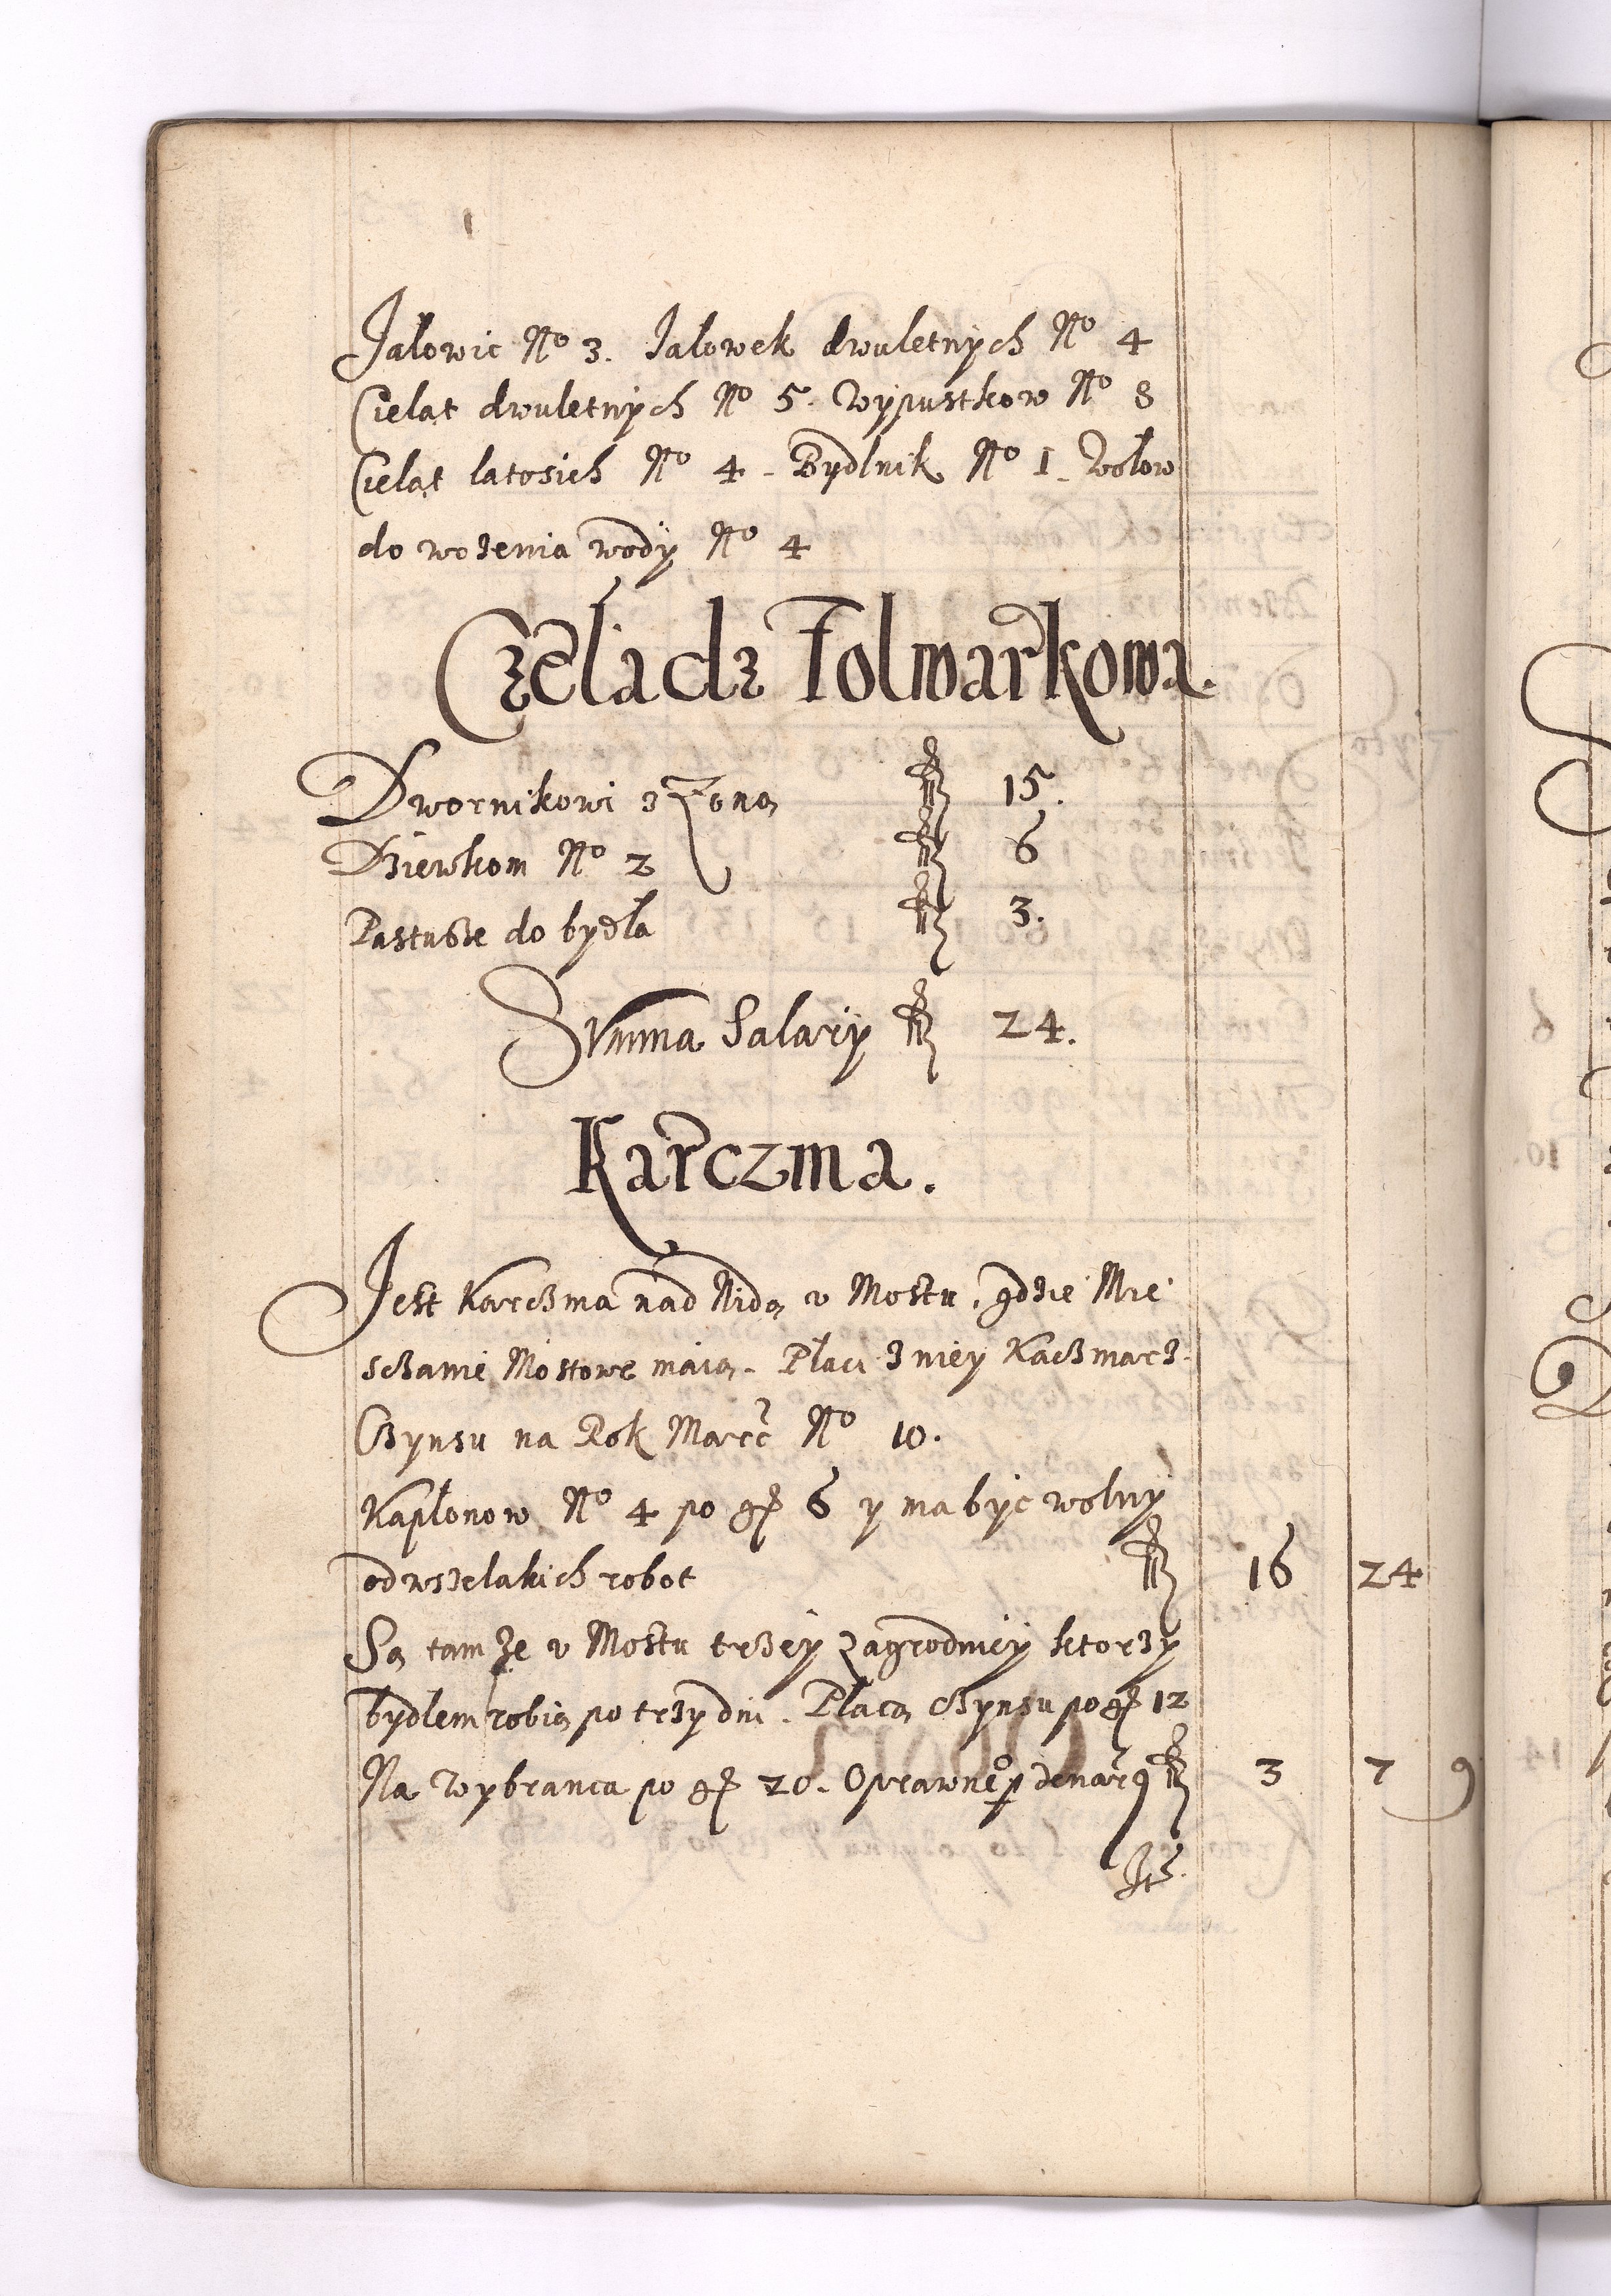 Jalowic No 3. Jalowek dwuletnych No 4
Cieląt dwuletnych No 5. Wypustkow No 8
Cieląt latosich No 4 - Bydlnik No 1 - Wołow
do wożenia wody No 4
Czeladz Folwarkowa.
Dwornikowi z Żoną fl 15.
Dziewkom No 2 fl 6
Pastusze do bydła fl 3.
Summa Salarÿ fl 24.
Karczma.
Jest Karczma nad Nidą v Mostu, gdzie Mie
sczanie Mostowe maią - Płaci z niey Kaczmarz
Czynsu na Rok Marc No 10.
Kapłonow No 4 po gr 6 y ma byc wolny
od wszelakich robot fl 16 24
Są tamże v Mostu trzey Zagrodnicy ktorzy
bydlem robią po trzy dni. Płacą czynsu po gr 12
Na Wybranca po gr 20. Oprawneo p denar 9 fl 3 7 9
Ite